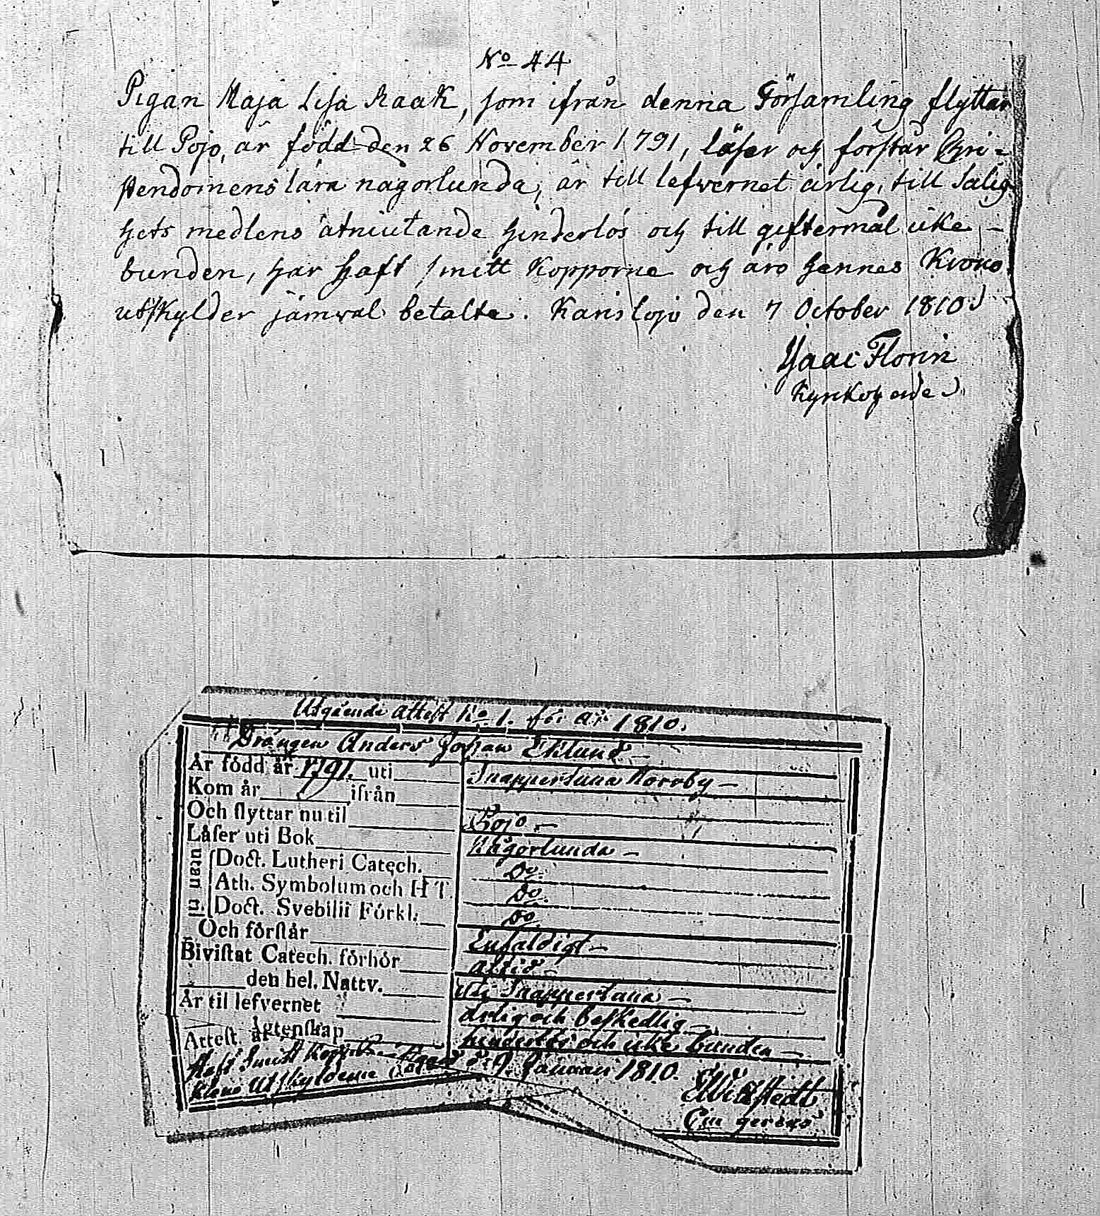 No 44
Pigan Maja Lisa Raak, som ifrån denna Församling flyttar
till Pojo, är född den 26 November 1791, läser och förstår Chri-
stendomens lära någorlunda, är till lefvernet ärlig, till Salig-
hets medlens åtniutande hinderlös och till giftermål icke
bunden, har haft smitt Kopporne och äro hennes Krono
utskylder jämwäl betalte. Karislojo den 7 October 1810
Isaac Florin
Kyrkoherde
Utgående attest No 1. för år 1810.
Drängen Anders Johan Eklund
Är född år 1791. uti Snappertuna Norrby
Kom år ifrån
Och flyttar nu til Pojo
Låser uti Bok Någorlunda
utan u. Doct. Lutheri Catech. Do
Ath. Symbolum och H T Do
Doct. Svebilii Förkl. Do
Och förstår Enfaldigt
Bivistat Catech. förhör altid
den hel. Nattv. uti Snappertuna
År til lefvernet ärlig och beskedlig
Attest. äktenskap hinderlös och icke bunden
Haft Smitt Koppor d: 9. Januari 1810.
Utskylderne